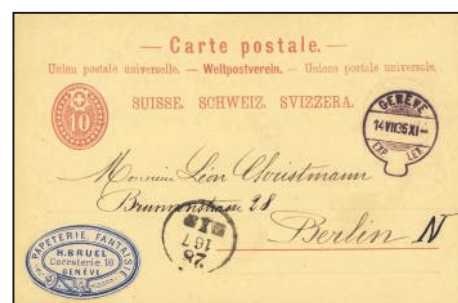 — Carte postale. —
Union postale universelle. — Weltpostverein. — Unione postale universale.
SUISSE. SCHWEIZ. SVIZZERA.
10
GENÈVE
14 VII 95 XI –
EXP. LET.
Monsieur Léon Christmann
Brunnenstrasse 28
Berlin N
28
16 7
PAPETERIE FANTAISIE
H. BRUEL
Corraterie. 16
GENÈVE